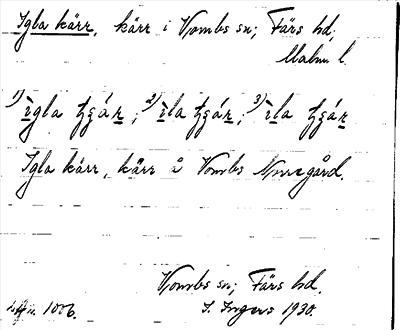 Igla kärr, kärr i Vombs sn; Färs hd,
Malm. l.
1) ìgla tʒár; 2) ìla tʒár; 3) ìla tʒár
Igla kärr, kärr å Vombs Norregård.
Vombs sn; Färs hd.
1006. I. Ingers 1930.